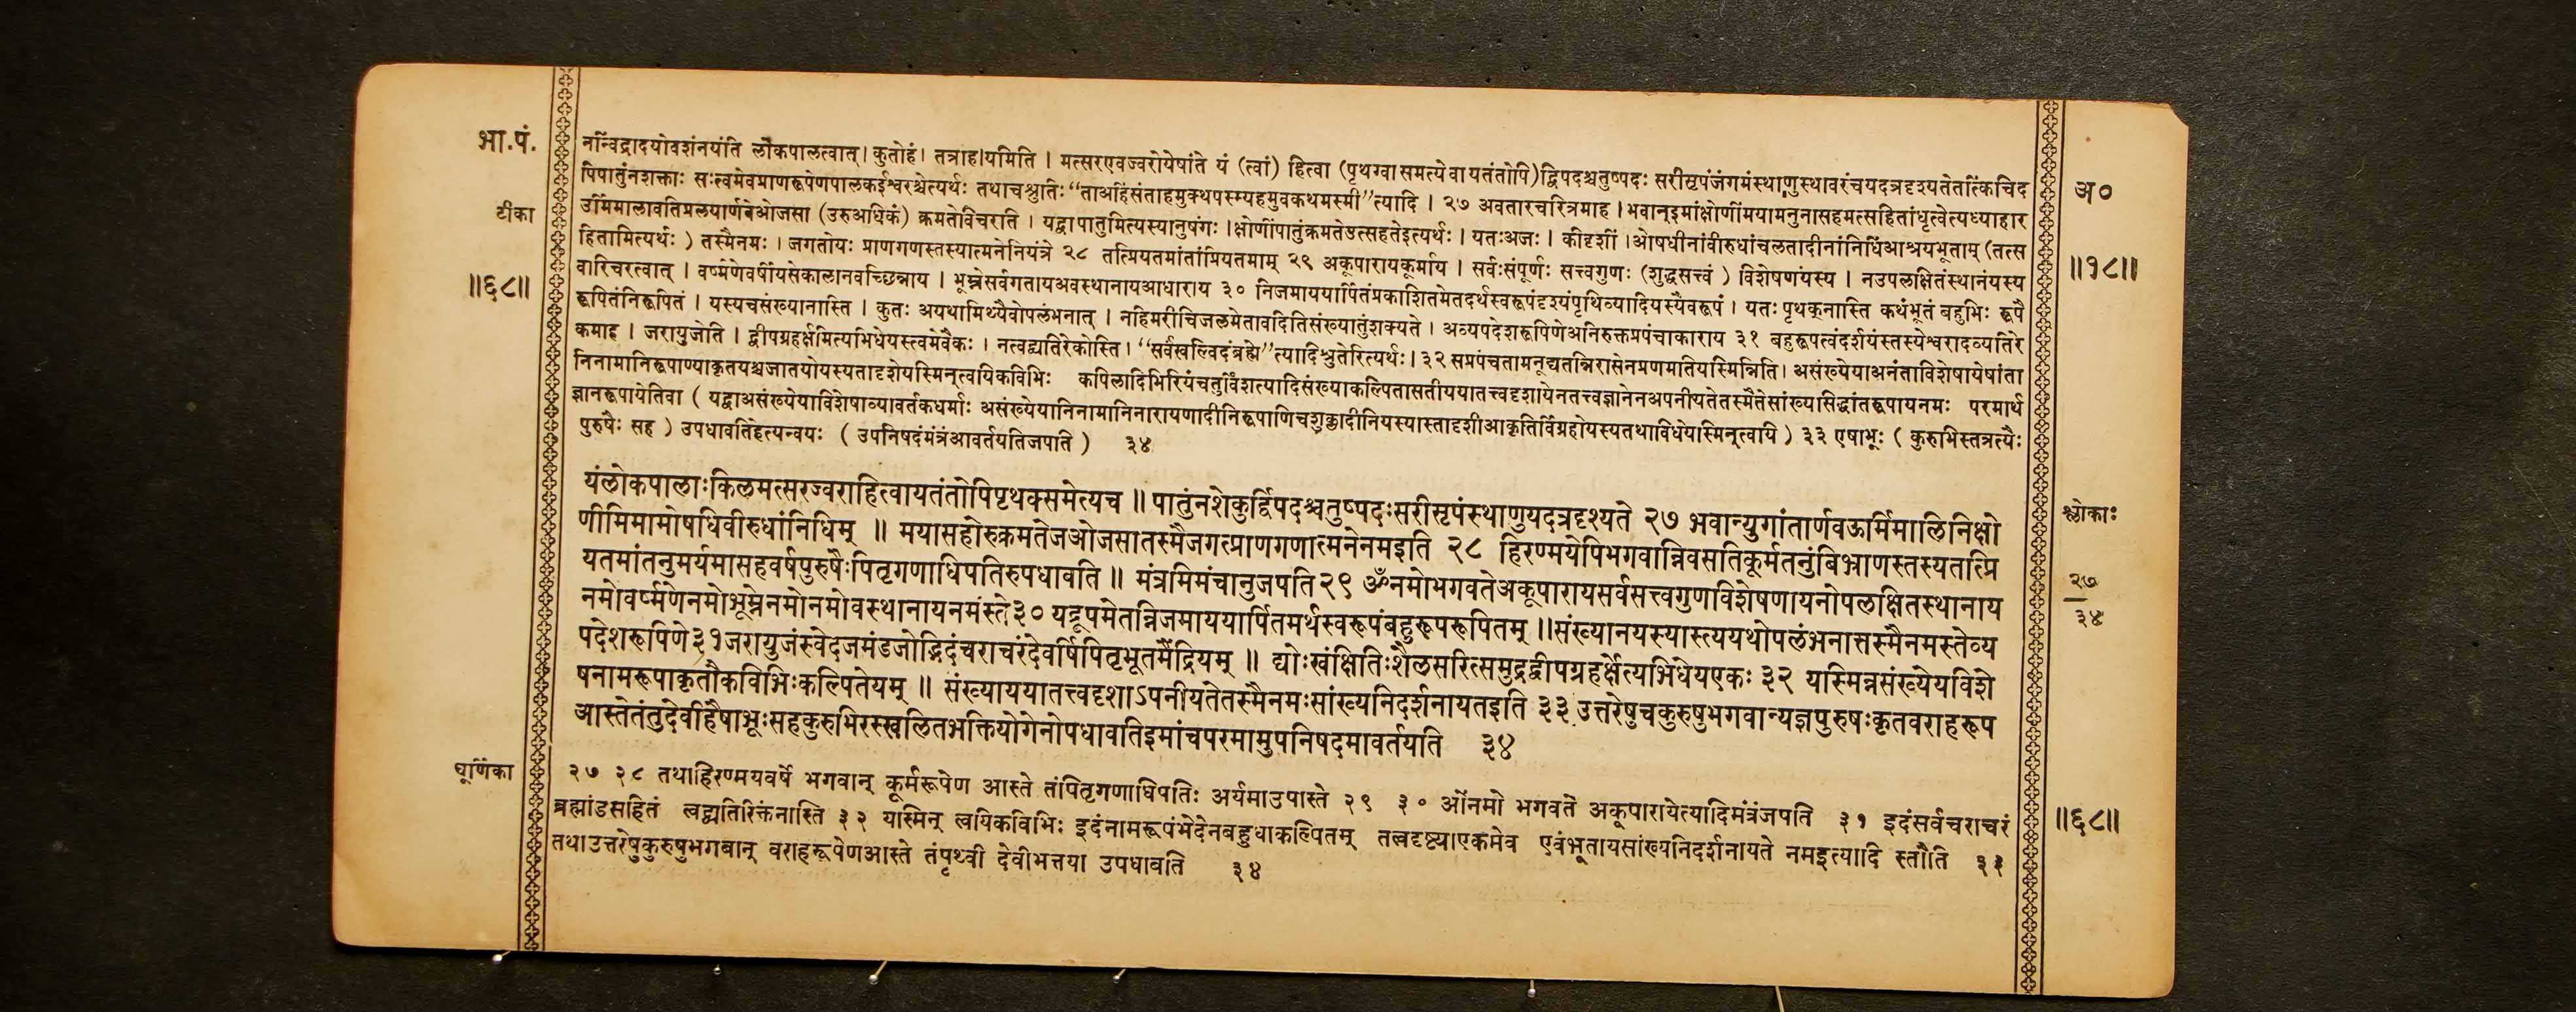 भा.पं.
टीका
॥६८॥
नन्विंद्रादयोवशंनयंति लोकपालत्वात्। कुतोहं। तत्राह।यमिति । मत्सरएवज्वरोयेषांते यं (त्वां) हित्वा (पृथग्वासमत्येवायतंतोपि)द्विपदश्चतुष्पदः सरीसृपंजंगमंस्थाणुस्थावरंचयदत्रदृश्यतेतत्किंचिद
पिपातुंनशक्ताः सःत्वमेवप्राणरूपेणपालकईश्वरश्चेत्यर्थः तथाचश्रुतिः “ताअहिंसंताहमुक्थपस्म्यहमुवकथमस्मी”त्यादि । २७ अवतारचरित्रमाह । भवान्इमांक्षोणींमयामनुनासहमत्सहितांधृत्वेत्यध्याहार
उर्मिमालावतिप्रलयार्णवेओजसा (उरुअधिकं) क्रमतोविचरति । यद्वापातुमित्यस्यानुषंगः ।क्षोणींपातुंक्रमतेउत्सहतेइत्यर्थः । यतःअजः । कीदृशीं ।ओषधीनांवीरुधांचलतादीनांनिधिंआश्रयभूताम् (तत्स
हितामित्यर्थः ) तस्मैनमः । जगतोयः प्राणगणस्तस्यात्मनेनियंत्रे २८ तत्प्रियतमांतांप्रियतमाम् २९ अकूपारायकूर्माय । सर्वःसंपूर्णः सत्त्वगुणः (शुद्धसत्त्वं ) विशेषणंयस्य । नउपलक्षितंस्थानंयस्य
वारिचरत्वात् । वर्ष्मणेवर्षीयसेकालानवच्छिन्नाय । भूम्नेसर्वगतायअवस्थानायआधाराय ३० निजमाययार्पितंप्रकाशितमेतदर्थस्वरूपंदृश्यंपृथिव्यादियस्यैवरूपं । यतः पृथक्नास्ति कथंभूतं बहुभिः रूपै
रूपितंनिरूपितं । यस्यचसंख्यानास्ति । कुतः अयथामिथ्यैवोपलंभनात् । नहिमरीचिजलमेतावदितिसंख्यातुंशक्यते । अव्यपदेशरूपिणेअनिरुक्तप्रपंचाकाराय ३१ बहुरूपत्वंदर्शयंस्तस्येश्वरादव्यतिरे
कमाह । जरायुजेति । द्वीपग्रहर्क्षमित्यभिधेयस्त्वमेवैकः । नत्वद्व्यतिरेकोस्ति। “सर्वंखल्विदंब्रह्मे”त्यादिश्रुतेरित्यर्थः। ३२ सप्रपंचतामनूद्यतन्निरासेनप्रणमतियस्मिन्निति। असंख्येयाअनंताविशेषायेषांता
निनामानिरूपाण्याकृतयश्चजातयोयस्यतादृशेयस्मिन्त्वयिकविभिः कपिलादिभिरियंचतुर्विंशत्यादिसंख्याकल्पितासतीययातत्त्वदृशायेनतत्त्वज्ञानेनअपनीयतेतस्मैतेसांख्यसिद्धांतरूपायनमः परमार्थ
ज्ञानरूपायेतिवा ( यद्वाअसंख्येयाविशेषाव्यावर्तकधर्माः असंख्येयानिनामानिनारायणादीनिरूपाणिचशुक्लादीनियस्यास्तादृशीआकृतिर्विग्रहोयस्यतथाविधेयस्मिन्त्वयि ) ३३ एषाभूः ( कुरुभिस्तत्रत्यैः
पुरुषैः सह ) उपधावतिहेत्यन्वयः ( उपनिषदंमंत्रंआवर्तयतिजपति ) ३४
यंलोकपालाःकिलमत्सरज्वराहित्वायतंतोपिपृथक्समेत्यच ॥ पातुंनशेकुर्द्विपदश्चतुष्पदःसरीसृपंस्थाणुयदत्रदृश्यते २७ भवान्युगांतार्णवऊर्मिमालिनिक्षो
णीमिमामोषधिवीरुधांनिधिम् ॥ मयासहोरुक्रमतेजओजसातस्मैजगत्प्राणगणात्मनेनमइति २८ हिरण्मयेपिभगवान्निवसतिकूर्मतनुंबिभ्राणस्तस्यतत्प्रि
यतमांतनुमर्यमासहवर्षपुरुषैःपितृगणाधिपतिरुपधावति ॥ मंत्रमिमंचानुजपति २९ ॐनमोभगवतेअकूपारायसर्वसत्त्वगुणविशेषणायनोपलक्षितस्थानाय
नमोवर्ष्मणेनमोभूम्नेनमोनमोवस्थानायनमस्ते३० यद्रूपमेतन्निजमाययार्पितमर्थस्वरूपंबहुरूपरूपितम् ॥संख्यानयस्यास्त्ययथोपलंभनात्तस्मैनमस्तेव्य
पदेशरूपिणे३१जरायुजंस्वेदजमंडजोद्भिदंचराचरंदेवर्षिपितृभूतमैंद्रियम् ॥ द्यौःखंक्षितिःशैलसरित्समुद्रद्वीपग्रहर्क्षेत्यभिधेयएकः ३२ यस्मिन्नसंख्येयविशे
षनामरूपाकृतौकविभिःकल्पितेयम् ॥ संख्याययातत्त्वदृशाऽपनीयतेतस्मैनमःसांख्यनिदर्शनायतइति ३३ उत्तरेषुचकुरुषुभगवान्यज्ञपुरुषःकृतवराहरूप
आस्तेतंतुदेवीहैषाभूःसहकुरुभिरस्खलितभक्तियोगेनोपधावतिइमांचपरमामुपनिषदमावर्तयति ३४
चूर्णिका
२७ २८ तथाहिरण्मयवर्षे भगवान् कूर्मरूपेण आस्ते तंपितृगणाधिपतिः अर्यमाउपास्ते २९ ३० ओंनमो भगवते अकूपारायेत्यादिमंत्रंजपति ३१ इदंसर्वंचराचरं
ब्रह्मांडसहितं त्वद्व्यतिरिक्तंनास्ति ३२ यस्मिन् त्वयिकविभिः इदंनामरूपंभेदेनबहुधाकल्पितम् तत्वदृष्ट्याएकमेव एवंभूतायसांख्यनिदर्शनायते नमइत्यादि स्तौति ३३
तथाउत्तरेषुकुरुषुभगवान् वराहरूपेणआस्ते तंपृथ्वी देवीभक्तया उपधावति ३४
अ०
॥१८॥
श्लोकाः
२७
३४
॥६८॥